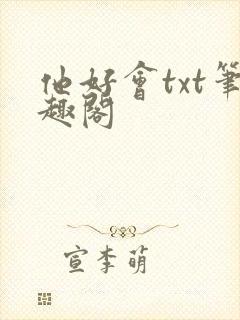 他好會txt筆
趣閣
宣李萌